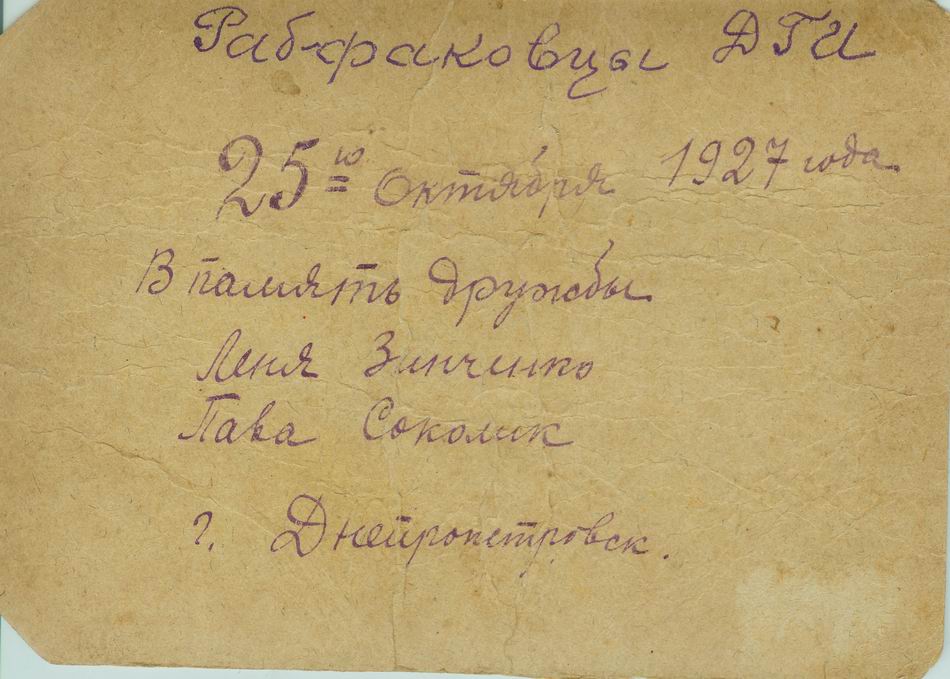 Рабфаковцы ДГИ
25го Октября 1927 года.
В память дружбы
Леня Зинченко
Пава Соколик
г. Днепропетровск.